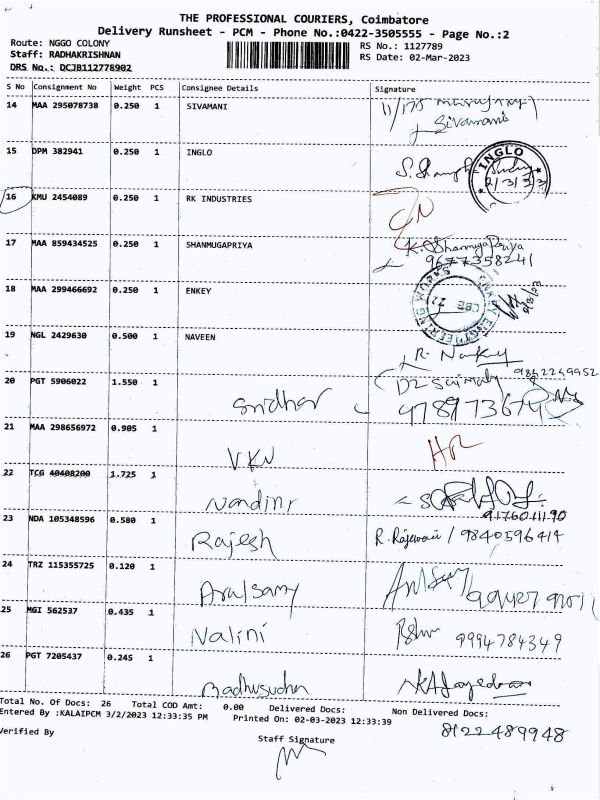 THE PROFESSIONAL COURIERS, Coimbatore
Delivery Runsheet - PCM - Phone No.:0422-3505555 - Page No.:2
Route: NGGO COLONY
Staff: RADHAKRISHNAN
DRS No.: DCJB112778902
RS No.: 1127789
RS Date: 02-Mar-2023
S No Consignment No Weight PCS Consignee Details Signature
14 MAA 295078738 0.250 1 SIVAMANI
Sivamani
15 DPM 382941 0.250 1 INGLO
INGLO
2/3/23
16 KMU 2454089 0.250 1 RK INDUSTRIES
17 MAA 859434525 0.250 1 SHANMUGAPRIYA K. Shanmuga Priya
9677358241
18 MAA 299466692 0.250 1 ENKEY
ENKEY ENGINEERING WORKS
CBE
22
19 NGL 2429630 0.500 1 NAVEEN
R.
20 PGT 5906022 1.550 1 9842269952
Sridhar
21 MAA 298656972 0.905 1
VKN
22 TCG 40408200 1.725 1
Nandini
9176011190
23 NDA 105348596 0.580 1
Rajesh R. Rajeswari / 9840596414
24 TRZ 115355725 0.120 1
Arulsamy
25 MGI 562537 0.435 1
Nalini 9994784349
26 PGT 7205437 0.245 1
Madhusudhan
Total No. Of Docs: 26 Total COD Amt: 0.00 Delivered Docs: Non Delivered Docs:
Entered By :KALAIPCM 3/2/2023 12:33:35 PM Printed On: 02-03-2023 12:33:39
8122489948
Verified By
Staff Signature